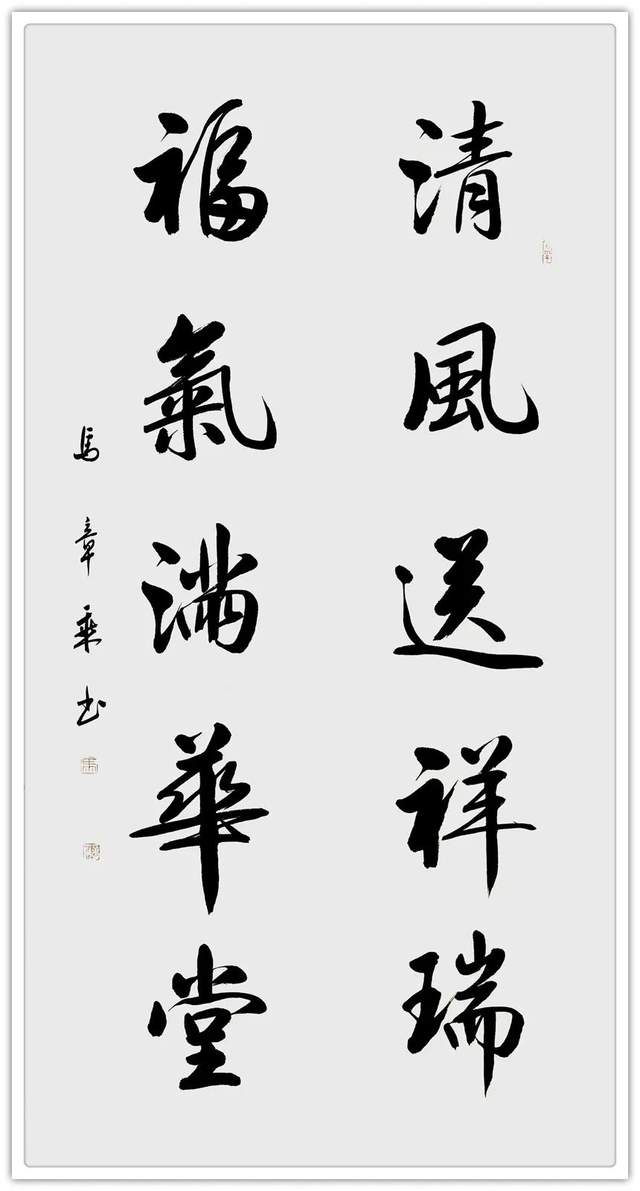 清風送祥瑞
福氣滿華堂
馬章乘书